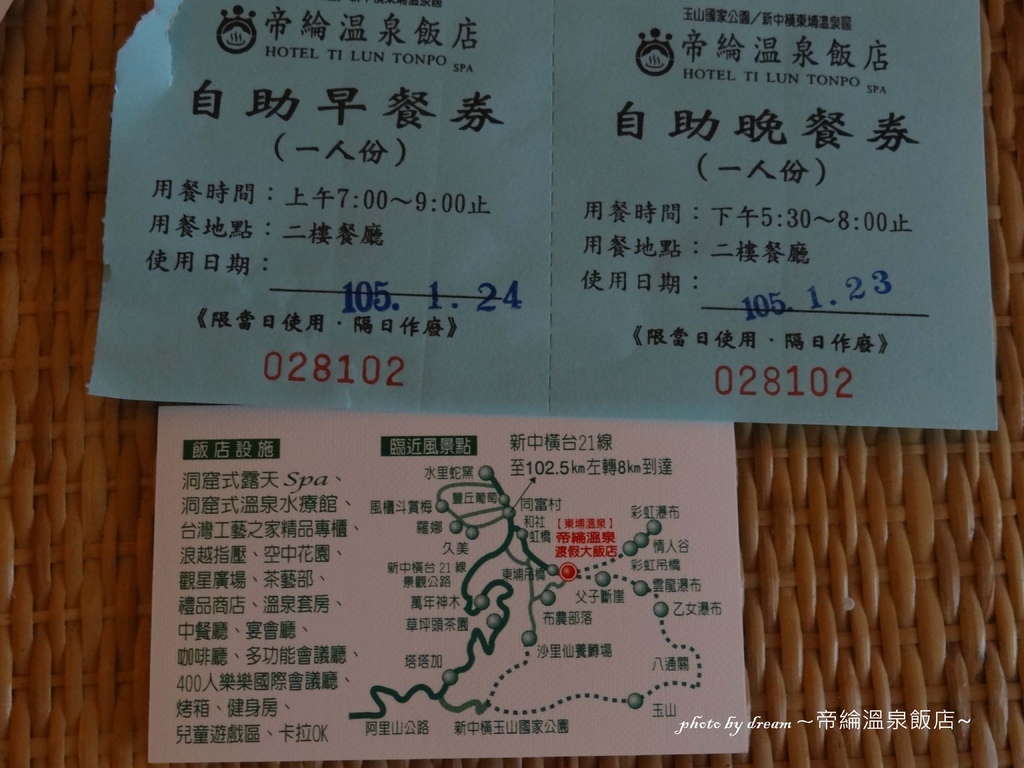 帝綸溫泉飯店
HOTEL TI LUN TONPO SPA
自助早餐券
（一人份）
用餐時間：上午7:00～9:00止
用餐地點：二樓餐廳
使用日期：
105. 1. 24
《限當日使用．隔日作廢》
028102
玉山國家公園／新中橫東埔溫泉區
帝綸溫泉飯店
HOTEL TI LUN TONPO SPA
自助晚餐券
（一人份）
用餐時間：下午5:30～8:00止
用餐地點：二樓餐廳
使用日期：
105. 1. 23
《限當日使用．隔日作廢》
028102
飯店設施
洞窟式露天Spa、
洞窟式溫泉水療館、
台灣工藝之家精品專櫃、
浪越指壓、空中花園、
觀星廣場、茶藝部、
禮品商店、溫泉套房、
中餐廳、宴會廳、
咖啡廳、多功能會議廳、
400人樂樂國際會議廳、
烤箱、健身房、
兒童遊戲區、卡拉OK
臨近風景點
新中橫台21線
至102.5km左轉8km到達
水里蛇窯
豐丘葡萄
風櫃斗賞梅
同富村
羅娜
和社
虹橋
久美
【東埔溫泉】
帝綸溫泉
渡假大飯店
彩虹瀑布
情人谷
彩虹吊橋
新中橫台21線
景觀公路
東埔吊橋
雲龍瀑布
父子斷崖
萬年神木
乙女瀑布
布農部落
草坪頭茶園
沙里仙養鱒場
塔塔加
八通關
玉山
阿里山公路
新中橫玉山國家公園
photo by dream ～帝綸溫泉飯店~